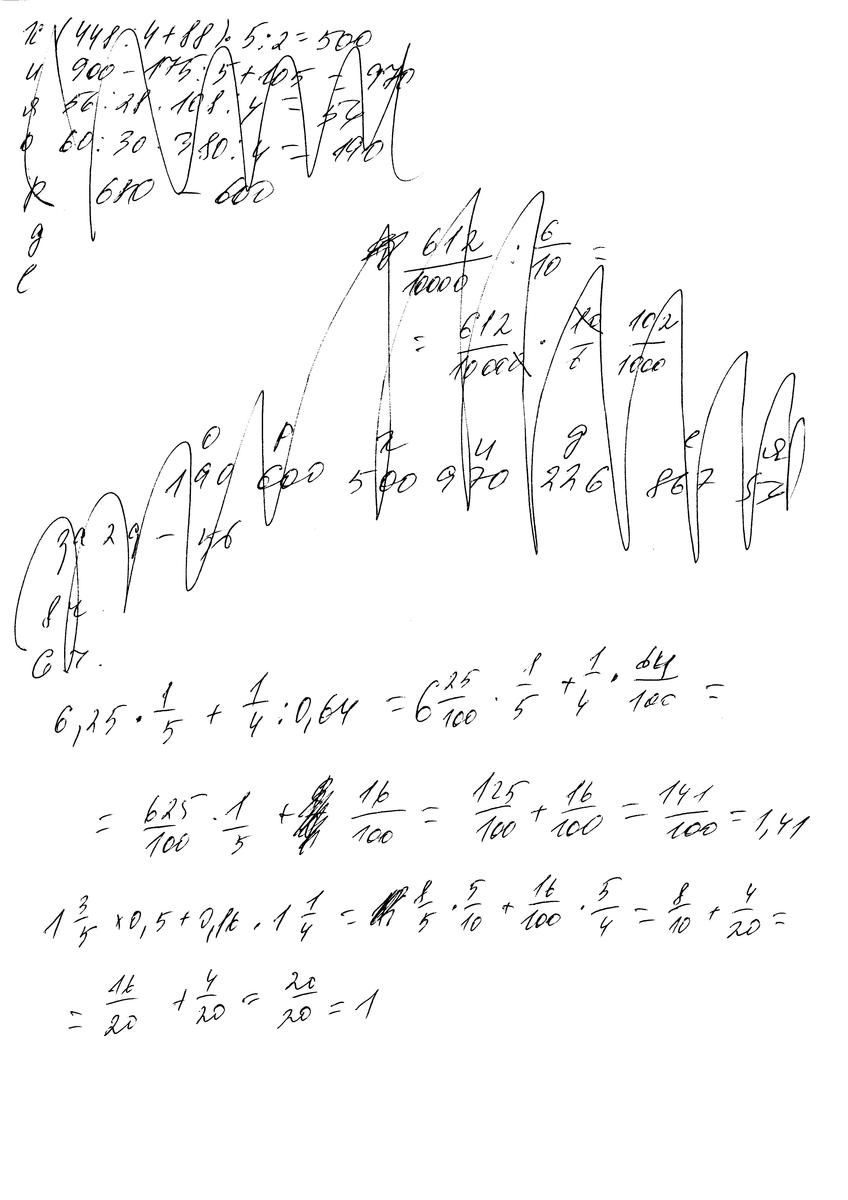 х (448:4+88)·5:2=500
и 900-175:5+105=970
я 56:28·108:4=54
о 60:30·380:4=190
р 680 - 600
д
е
612/10000 : 6/10 =
= 612/10000 · 10/6 102/1000
о р х и д е я
190 600 500 970 226 867 54
3а 2с - 46
8
6
6,25·1/5+1/4:0,64=6 25/100·1/5+1/4·64/100=
=625/100·1/5+16/100=125/100+16/100=141/100=1,41
1 3/5×0,5+0,16·1 1/4=8/5·5/10+16/100·5/4=8/10+4/20=
=16/20+4/20=20/20=1